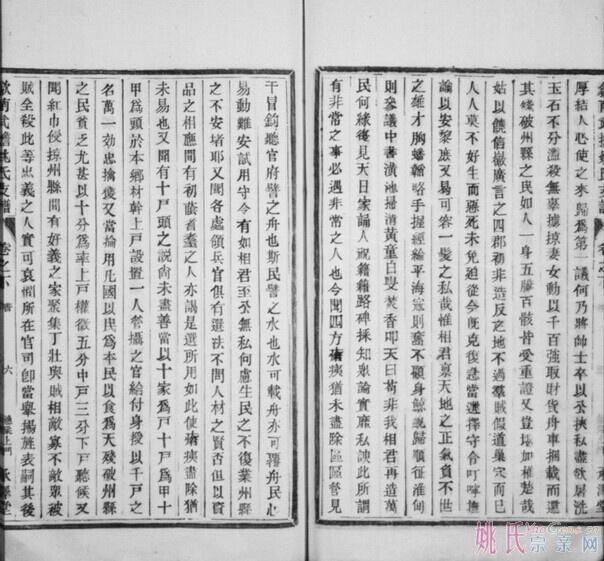 厚結人心使之來歸為第一議何乃將帥士卒以公挾私盡欲屠洗
玉石不分濫殺無辜擄掠妻女動以千百強取財貨舟車捆載而還
其殘破州縣之民如人一身五臟百骸皆受重證又豈堪加捶楚哉
姑以饒信徽廣言之四郡初非造反之地不過羣賊假道巢穴而已
人人莫不好生而惡死未免廹從今旣克復悉當選擇守令叮嚀撫
論以安黎庶又易可容一髮之私哉惟相君稟天地之正氣負不世
之雄才胸蟠韜略手握經綸平海寇則奮不顧身鯨
則參議中書潢池掃清黃童白叟焚香叩天曰苟非我相君再造萬
民何緣復見天日家誦人祝籍籍路碑採知衆論實靡私諛此所謂
有非常之事必遇非常之人也今聞四方瘡痍猶未盡除區區管見
干冒鈞聽官府譬之舟也斯民譬之水也水可載舟亦可覆舟民心
易動難安試用守令有如相君至公無私何慮生民之不復業州縣
之不安堵耶又聞各處領兵官俱有選法不問人材之賢否但以資
品之相應間有初蒞者耋之人亦謂是選所用如此使瘡痍盡除猶
未易也又聞有十戶頭之說尚未盡善當以十家為戶十戶為甲十
甲為頭於本鄉材幹上戶設置一人管攝之官給付身授以千戶之
名萬一効忠擒獲又當掄用凡國以民為本民以食為天殘破州縣
之民貧乏尤甚以十分為率上戶權徵五分中戶三分下戶聽候又
聞紅巾侵掠州縣間有好義之家聚集丁壯與賊相敵寡不敵衆被
賊全殺此等忠義之人實可哀憫所在官司卽當舉揚旌表嗣其後
姚氏支譜
卷之下
六
姚氏宗亲网
YaoGens.cn